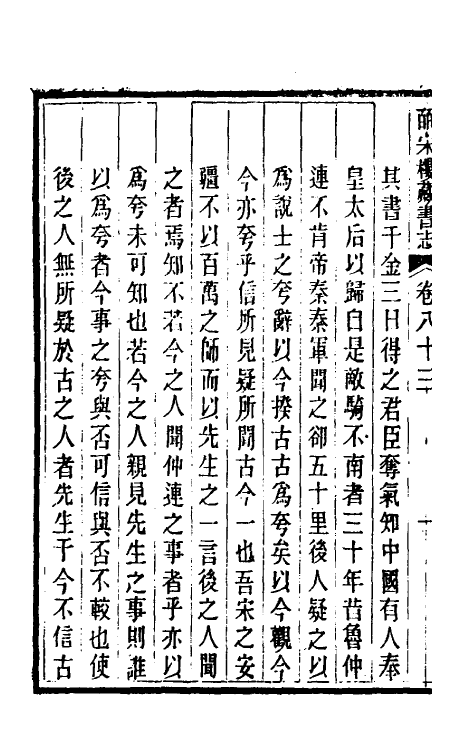 皕宋樓藏書志 卷八十三 十
其書千金三日得之君臣奪氣知中國有人奉
皇太后以歸自是敵騎不南者三十年昔魯仲
連不肯帝秦秦軍聞之卻五十里後人疑之以
爲說士之夸辭以今揆古古爲夸矣以今觀今
今亦夸乎信所見疑所聞古今一也吾宋之安
疆不以百萬之師而以先生之一言後之人聞
之者焉知不若今之人聞仲連之事者乎亦以
爲夸未可知也若今之人親見先生之事則誰
以爲夸者今事之夸與否可信與否不較也使
後之人無所疑於古之人者先生于今不信古